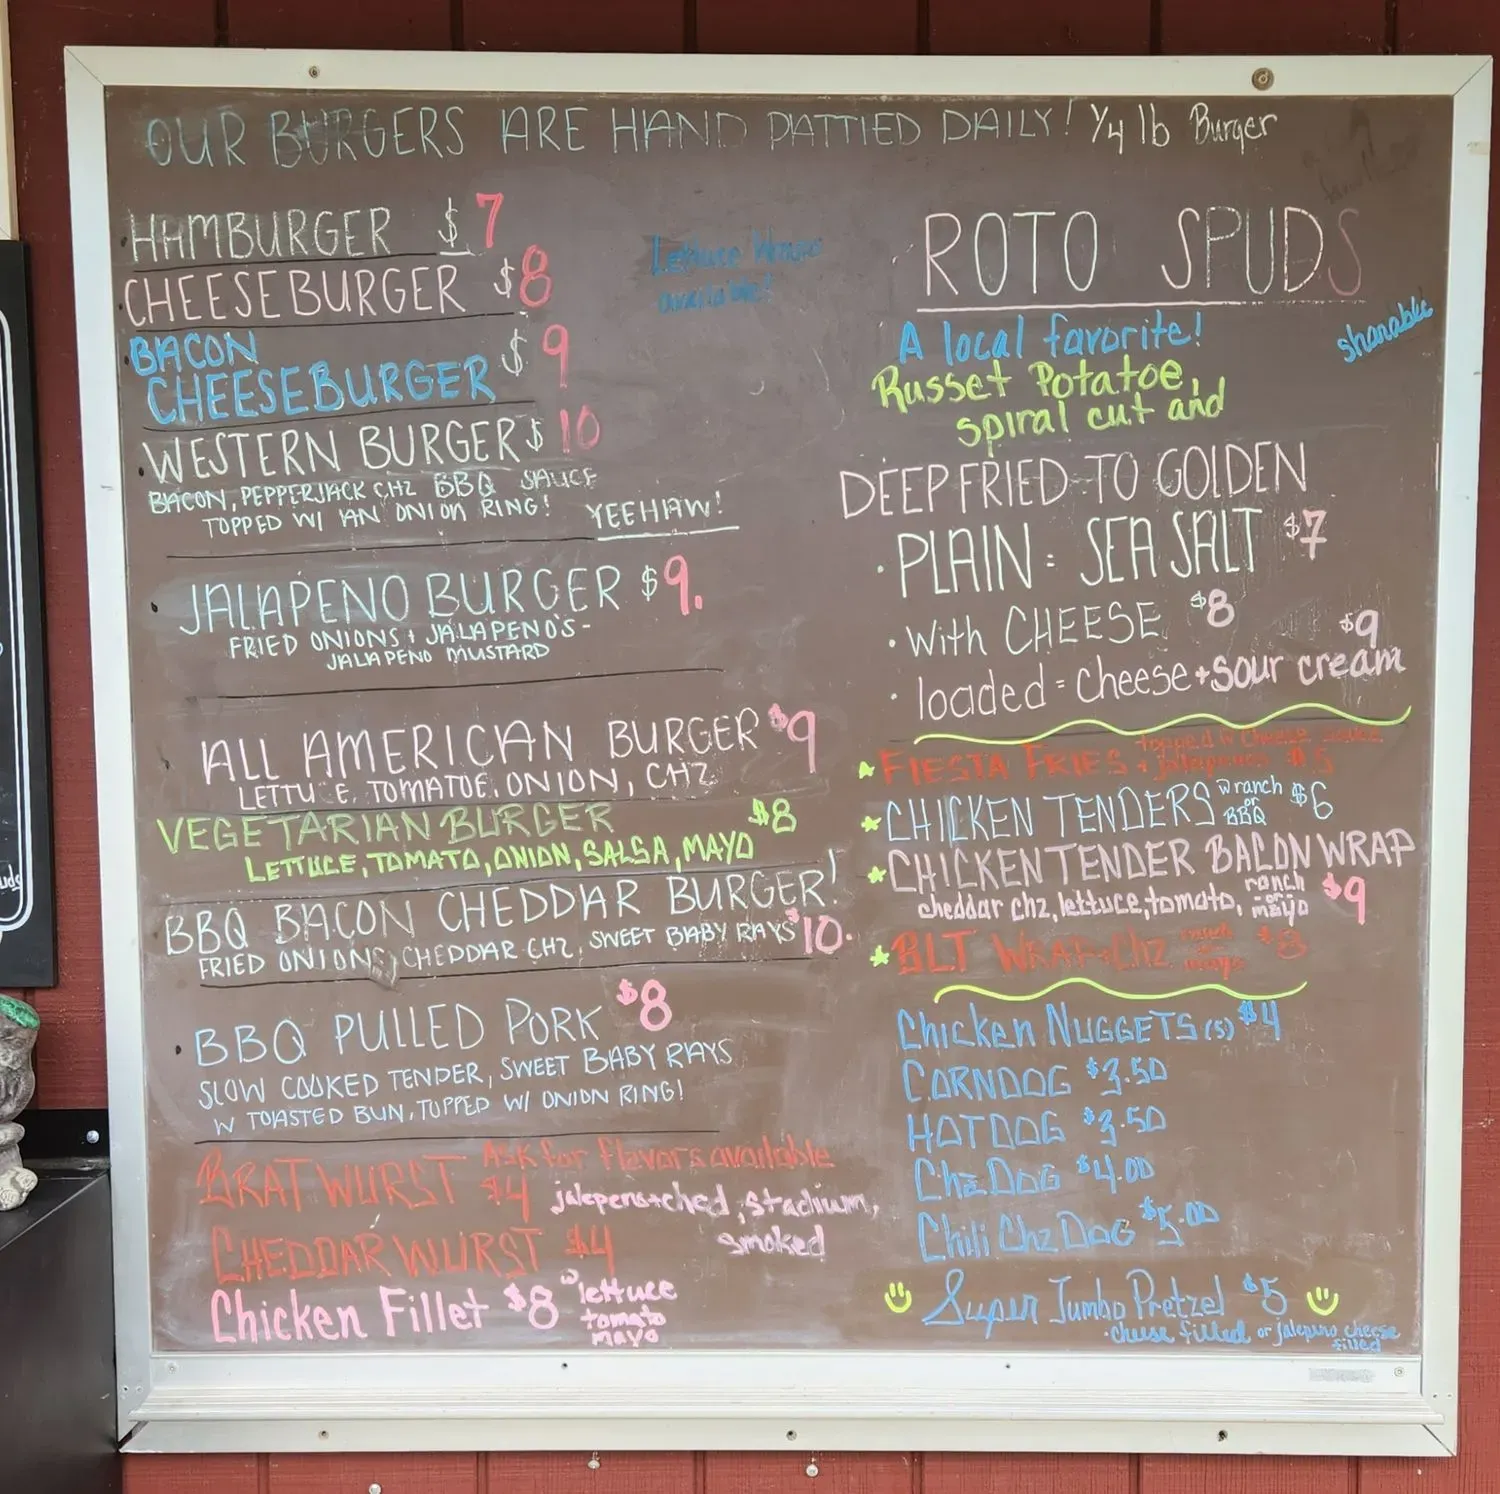 OUR BURGERS ARE HAND PATTIED DAILY! 1/4 lb Burger
HAMBURGER $7
CHEESEBURGER $8
Lettuce Wraps
available!
BACON
CHEESEBURGER $9
WESTERN BURGER $10
BACON, PEPPERJACK CHZ BBQ SAUCE
TOPPED W/ AN ONION RING! YEEHAW!
JALAPENO BURGER $9.
FRIED ONIONS + JALAPENO'S -
JALAPENO MUSTARD
ALL AMERICAN BURGER $9
LETTUCE, TOMATOE, ONION, CHZ
VEGETARIAN BURGER $8
LETTUCE, TOMATO, ONION, SALSA, MAYO
BBQ BACON CHEDDAR BURGER!
FRIED ONIONS, CHEDDAR CHZ, SWEET BABY RAYS $10.
BBQ PULLED PORK $8
SLOW COOKED TENDER, SWEET BABY RAYS
W TOASTED BUN, TOPPED W/ ONION RING!
BRATWURST Ask for flavors available
$4 jalepeno+ched, stadium,
smoked
CHEDDARWURST $4
Chicken Fillet $8 w lettuce
tomato
mayo
ROTO SPUDS
sharable
A local favorite!
Russet Potatoe,
spiral cut and
DEEP FRIED TO GOLDEN
• PLAIN = SEA SALT $7
• With CHEESE $8
• loaded = Cheese + Sour cream $9
FIESTA FRIES topped w cheese sauce
+ jalapenos $5
CHICKEN TENDERS w ranch
or
BBQ $6
CHICKEN TENDER BACON WRAP
cheddar chz, lettuce, tomato, ranch
or
mayo $9
BLT WRAP + Chz $8
mayo
Chicken NUGGETS (5) $4
CORNDOG $3.50
HOTDOG $3.50
Chz DOG $4.00
Chili Chz DOG $5.00
Super Jumbo Pretzel $5
• cheese filled or jalepeno cheese
filled